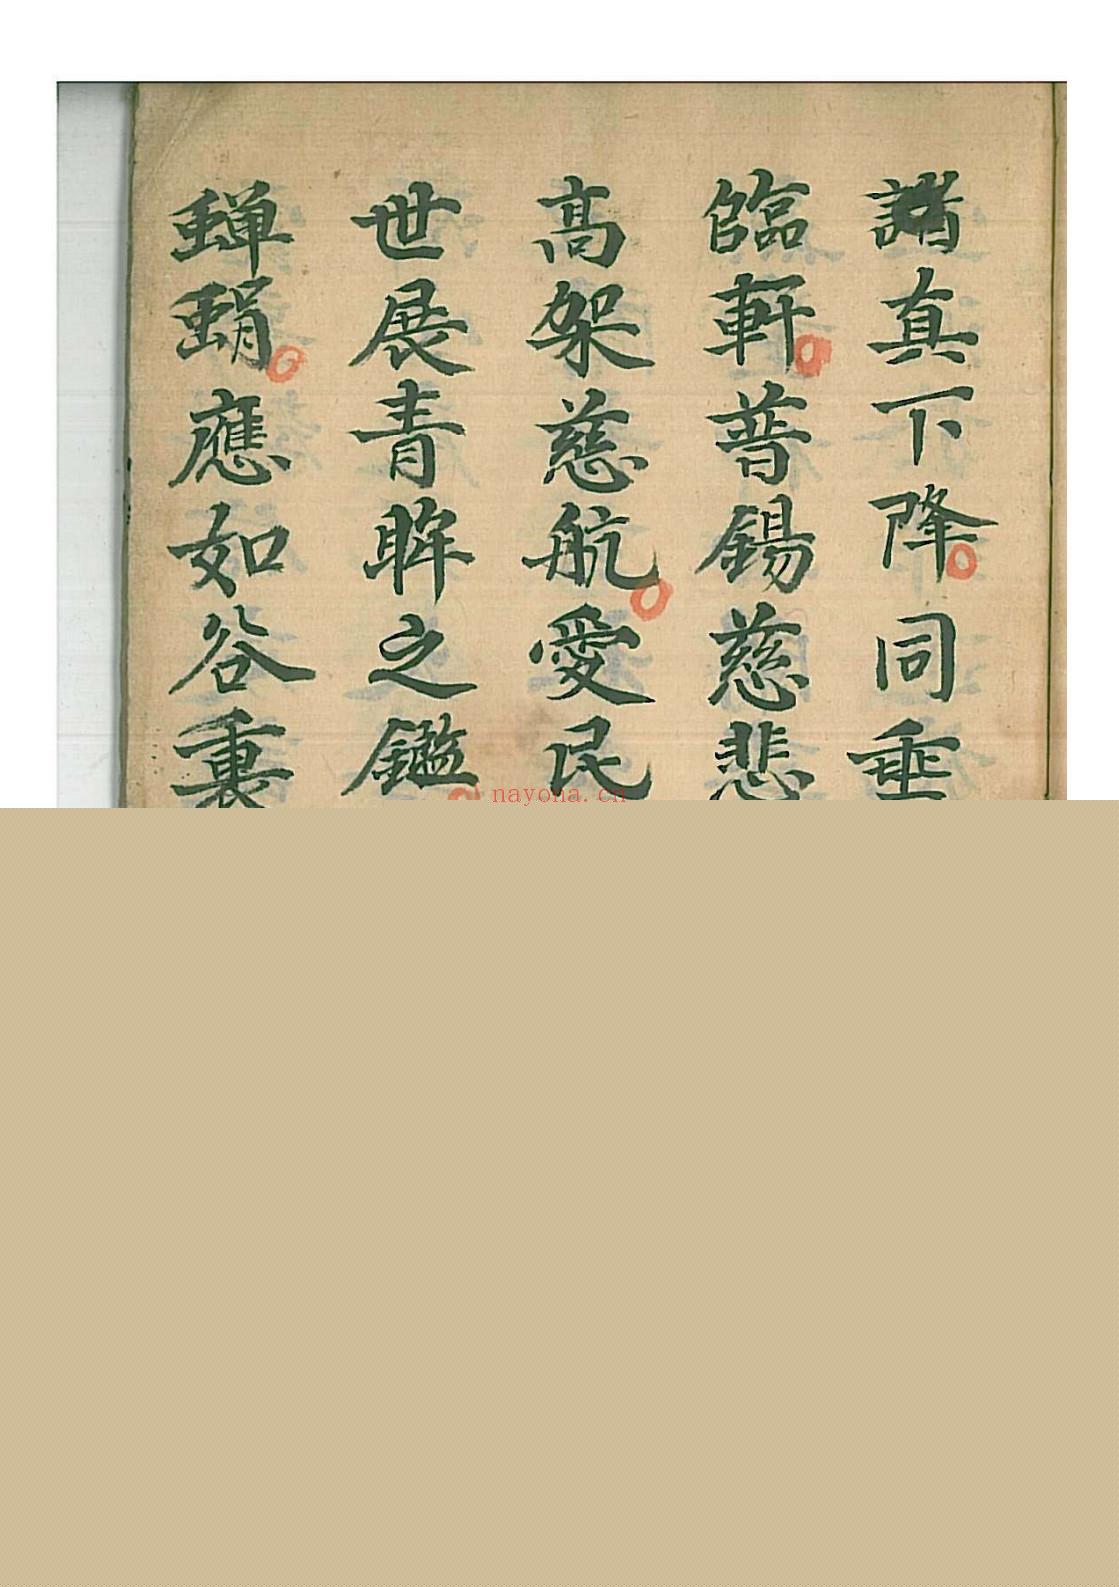 諸真下降同垂
臨軒普錫慈悲
高架慈航愛民
世展青眸之鑑
蟬蜎應如谷裏
nayona.cn